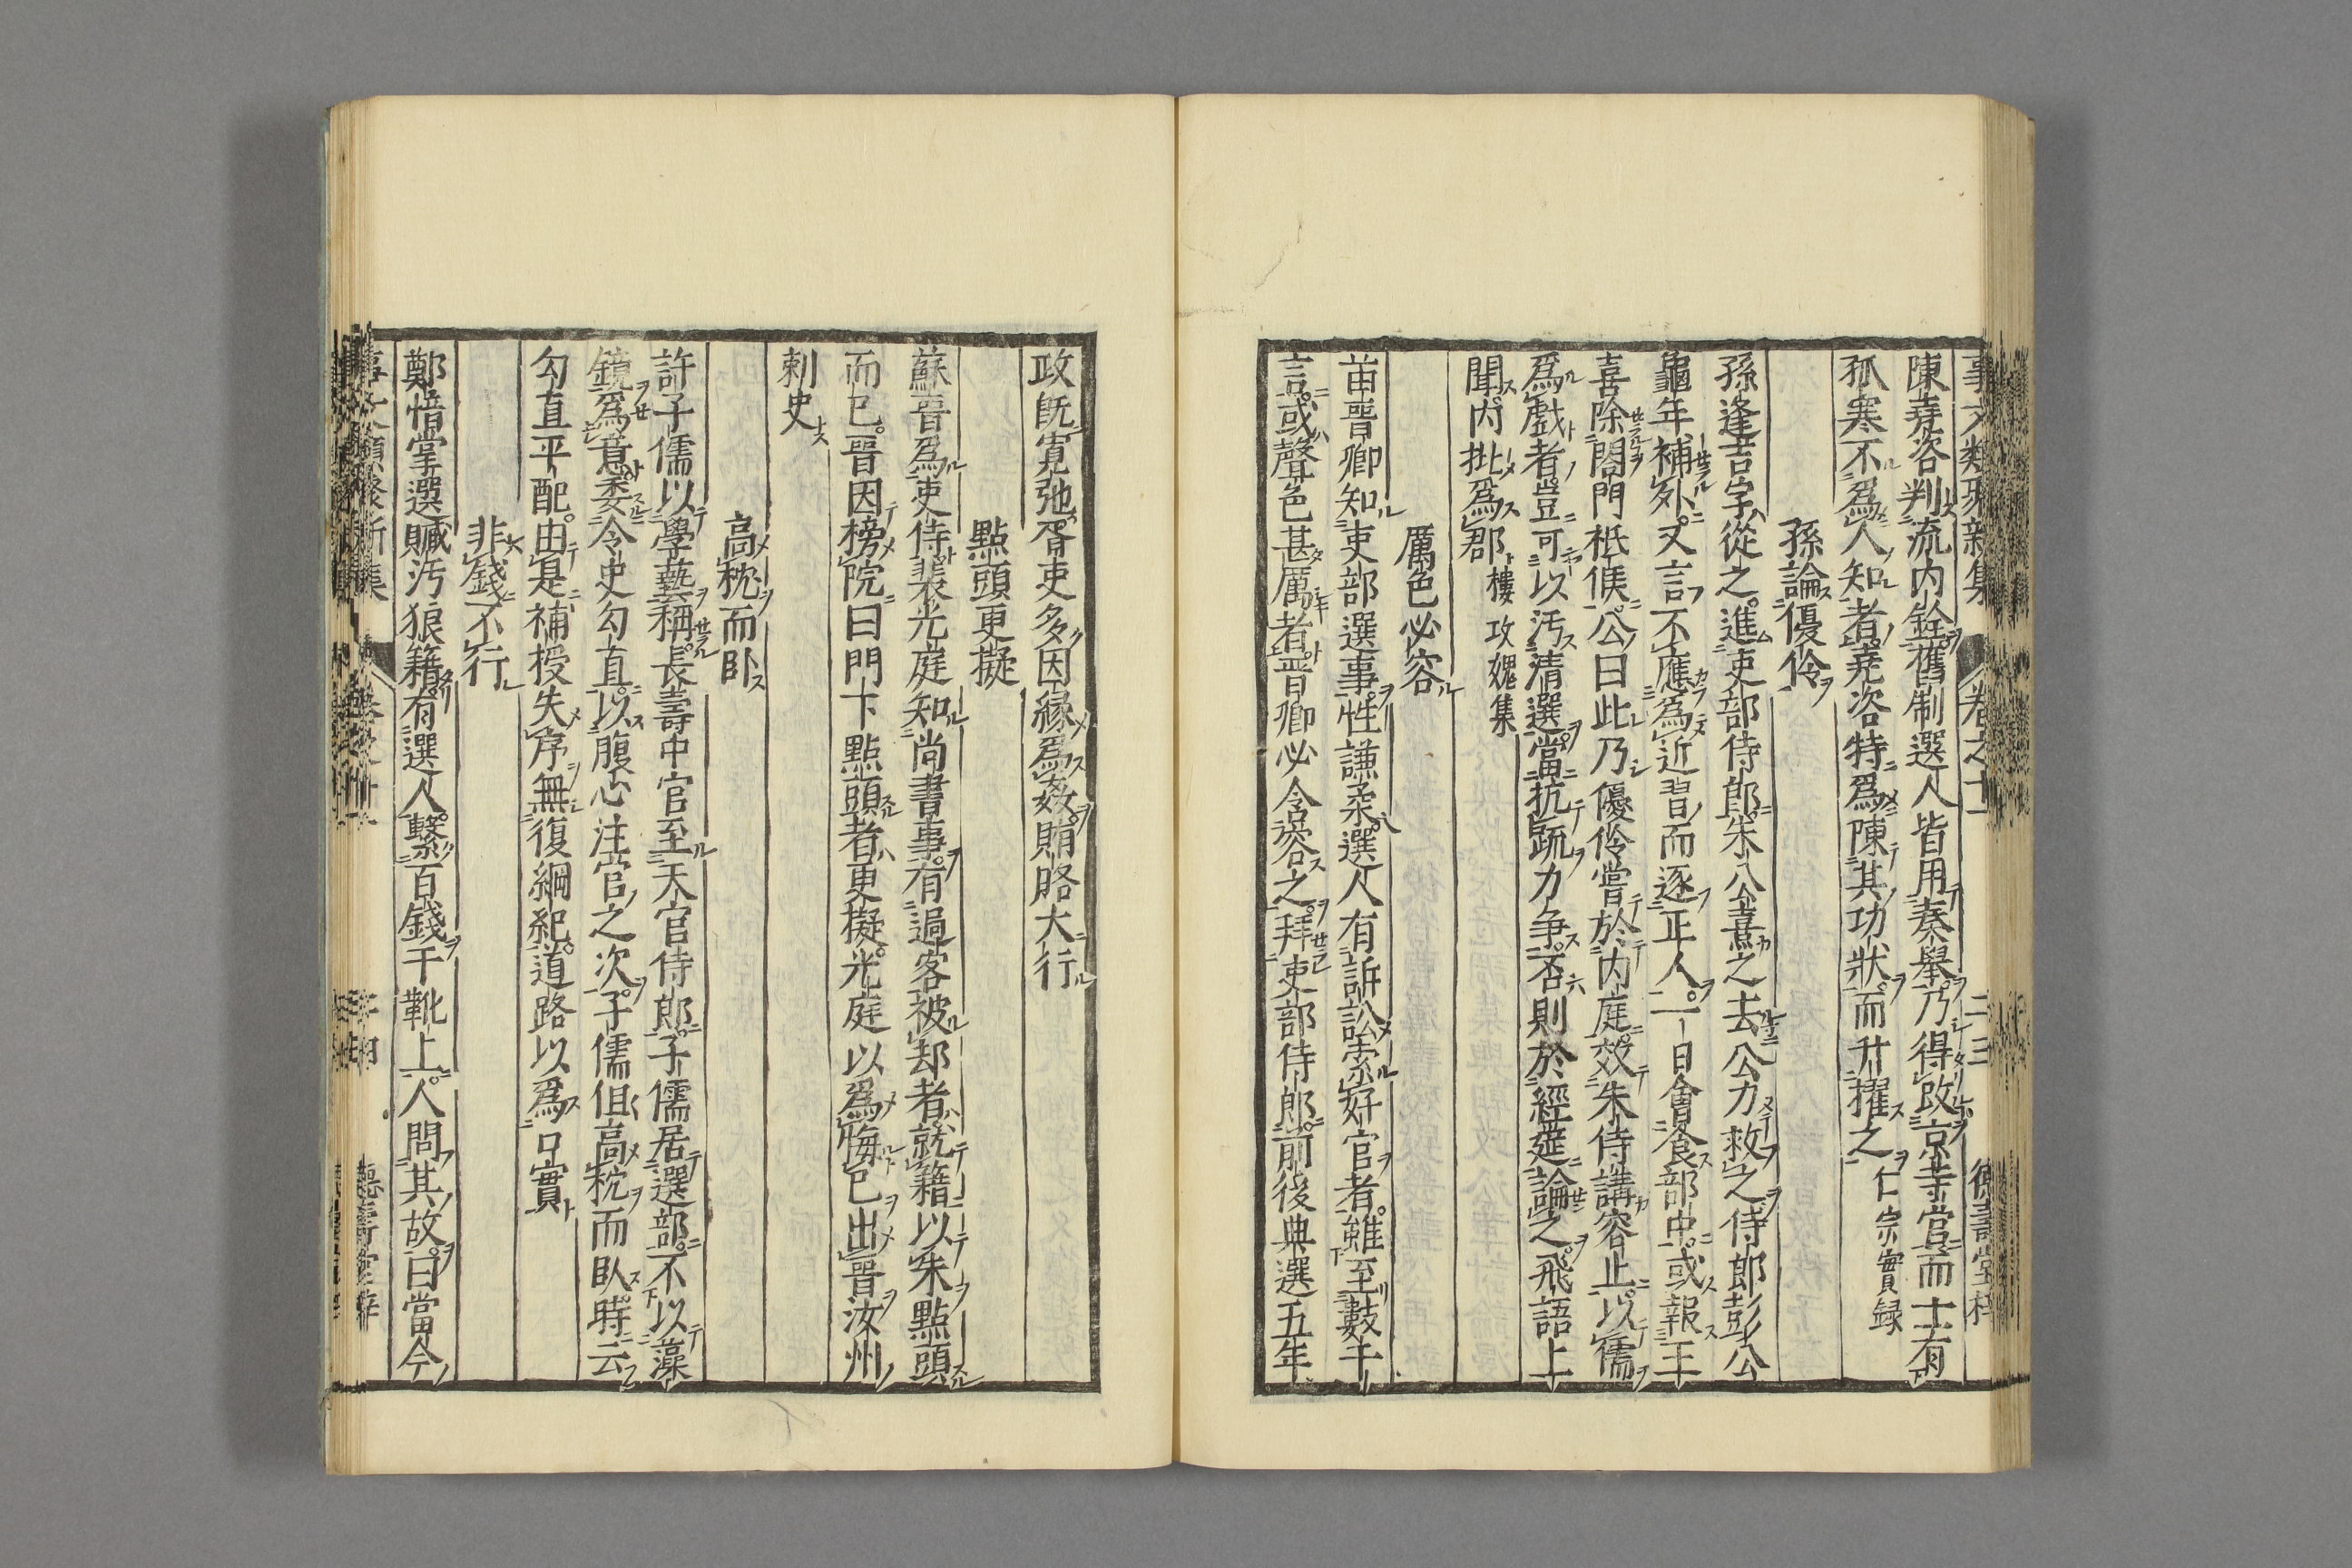 陳堯咨判流内銓舊制選人皆用奏舉乃得改京寺當而士有
孤寒不爲人知者堯咨特爲陳其功狀而升擢之仁宗實録
孫論優伶
孫逢吉字從之進吏部侍郎朱公熹之去公力救之侍郎彭公
龜年補外又言不應爲近習而逐正人一日會食部中或報王
喜除閤門祗候公曰此乃優伶嘗於内庭效朱侍講容止以儒
爲戲者豈可以汚清選當抗疏力争否則於經筵論之飛語上
聞内批爲郡樓攻媿集
厲色必容
苗晋卿知吏部選事性謙柔選人有訴訟索好官者雖至數千
言或聲色甚厲者晋卿必含容之拜吏部侍郎前後典選五年
政既寛弛胥吏多因緣爲姦賄賂大行
點頭更擬
蘇晋爲吏侍裴光庭知尚書事有過客被却者就籍以朱點頭
而已晋因榜院曰門下點頭者更擬光庭以爲侮已出晋汝州
刺史
高枕而臥
許子儒以學藝稱長壽中官至天官侍郎子儒居選部不以藻
鏡爲意委令史勾直以腹心注官之次子儒但高枕而臥時云
勾直平配由是補授失序無復綱紀道路以爲口實
非錢不行
鄭愔掌選贓汚狼籍有選人繫百錢于靴上人問其故曰當今